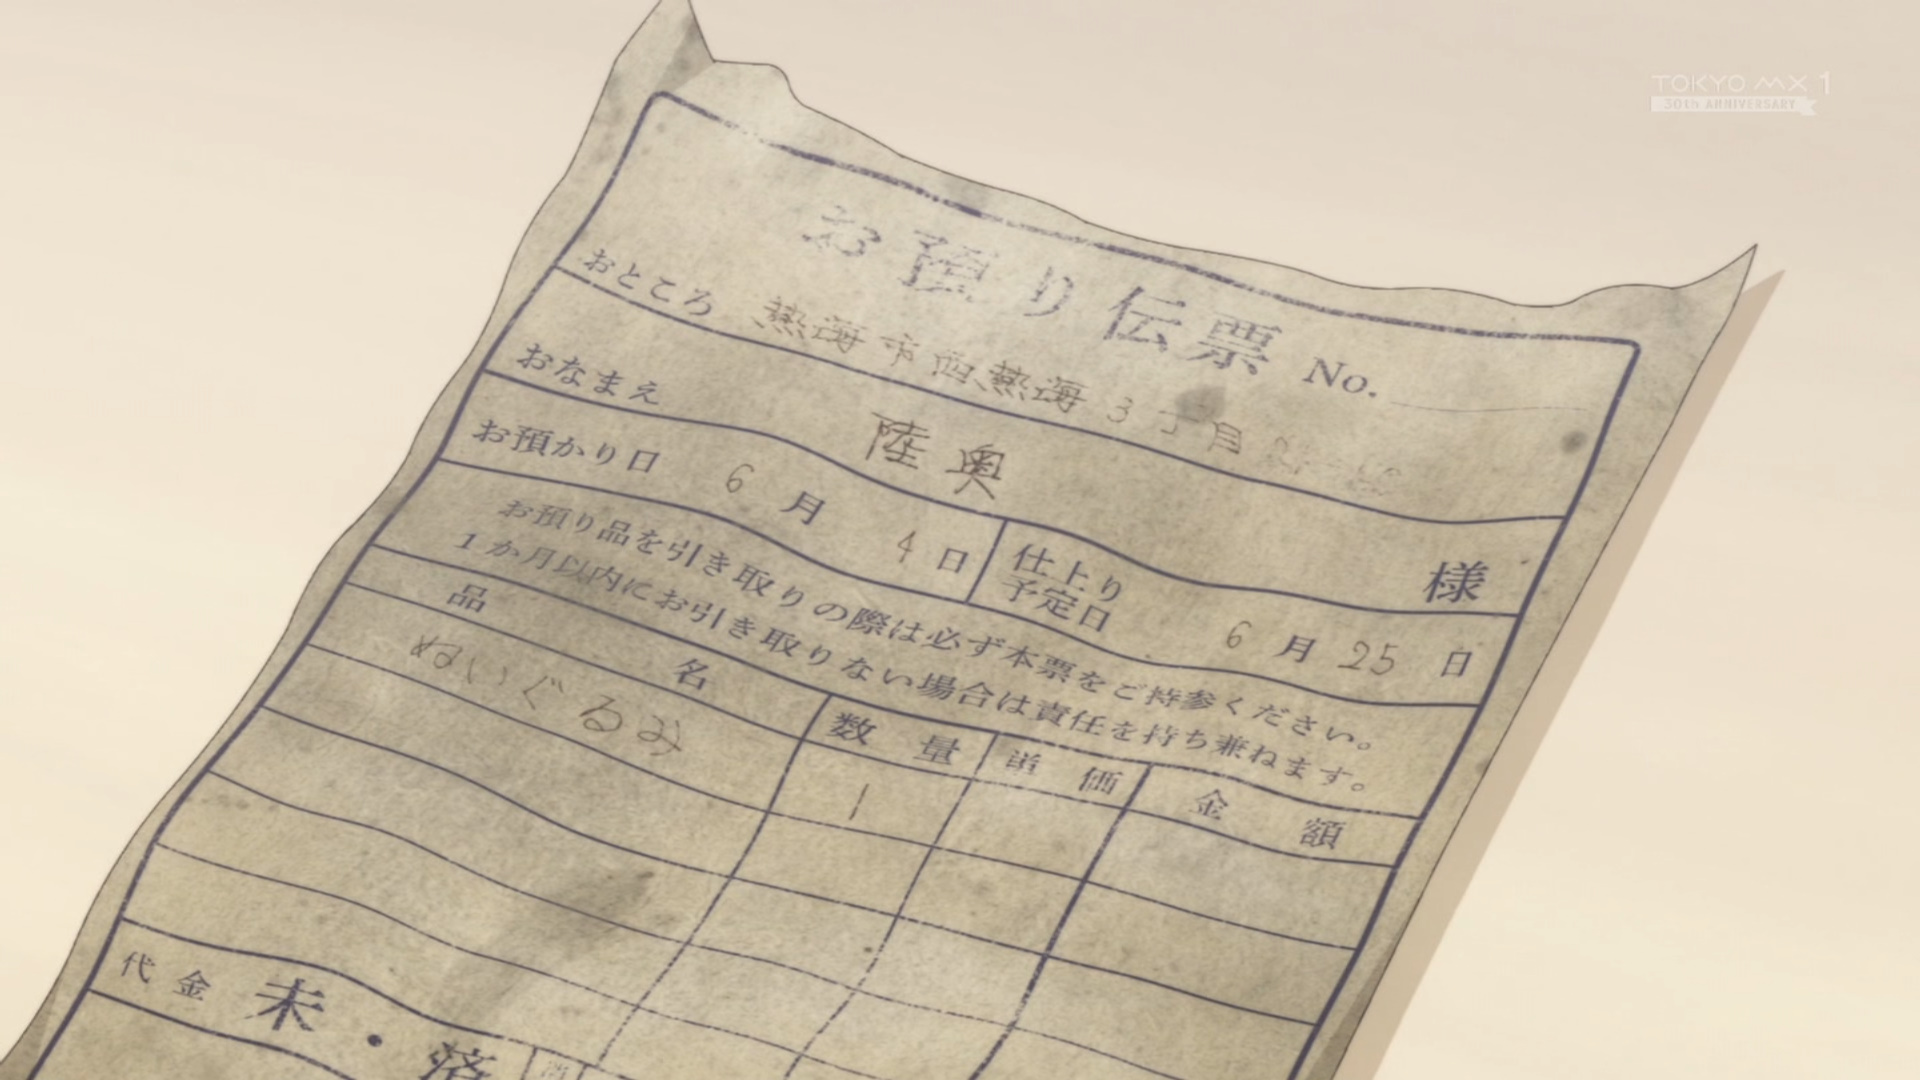 TOKYO MX 1
30th ANNIVERSARY
お預り伝票 No.
おところ 熱海市西熱海3丁目
おなまえ 陸奥 様
お預かり日 6月4日 仕上り予定日 6月25日
お預り品を引き取りの際は必ず本票をご持参ください。
1か月以内にお引き取りない場合は責任を持ち兼ねます。
品名 数量 単価 金額
ぬいぐるみ 1
代金 未・済